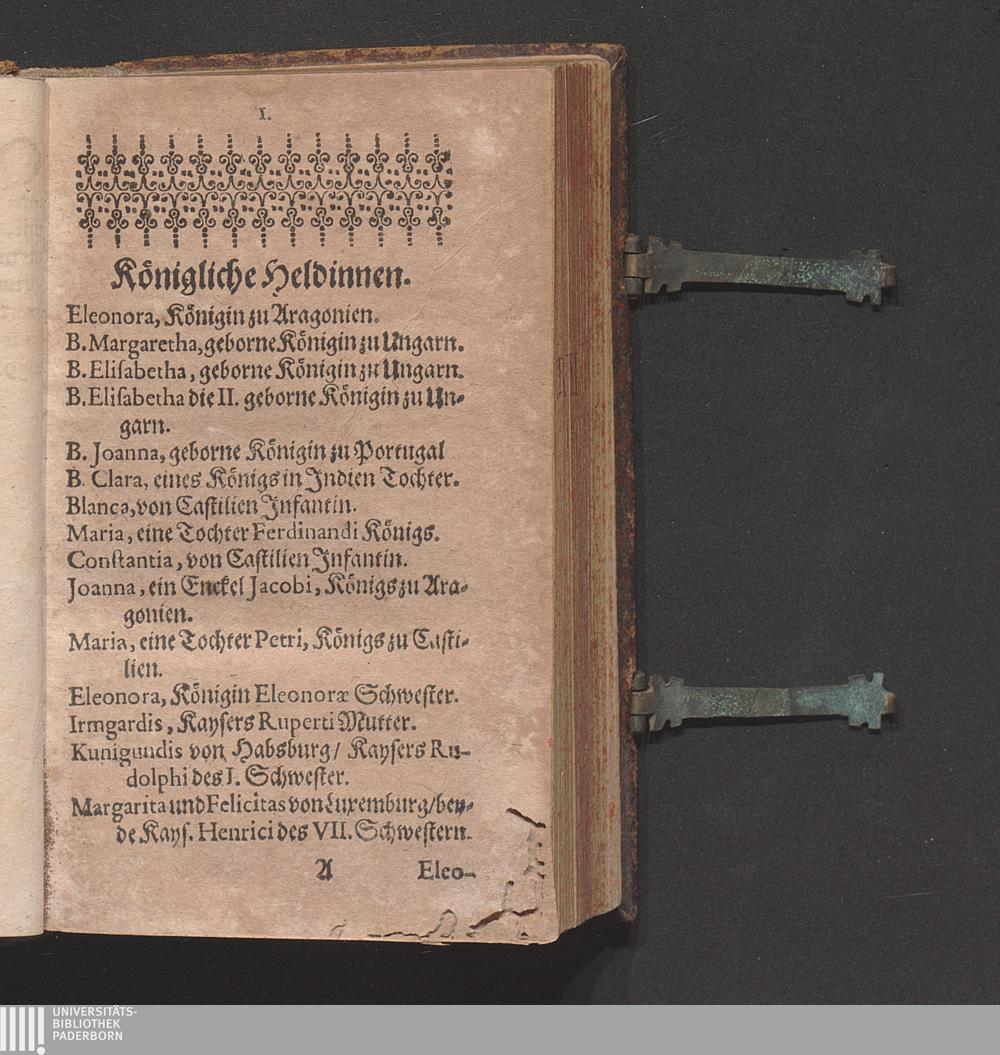 1.
Königliche Heldinnen.
Eleonora, Königin zu Aragonien.
B. Margaretha, geborne Königin zu Ungarn.
B. Elisabetha, geborne Königin zu Ungarn.
B. Elisabetha die II. geborne Königin zu Un-
garn.
B. Joanna, geborne Königin zu Portugal
B. Clara, eines Königs in Indien Tochter.
Blanca, von Castilien Infantin.
Maria, eine Tochter Ferdinandi Königs.
Constantia, von Castilien Infantin.
Joanna, ein Enckel Jacobi, Königs zu Ara-
gonien.
Maria, eine Tochter Petri, Königs zu Casti-
lien.
Eleonora, Königin Eleonoræ Schwester.
Irmgardis, Kaysers Ruperti Mutter.
Kunigundis von Habsburg/ Kaysers Ru-
dolphi des I. Schwester.
Margarita und Felicitas von Luxemburg/ bey-
de Kays. Henrici des VII. Schwestern.
A Eleo-
UNIVERSITÄTS-
BIBLIOTHEK
PADERBORN